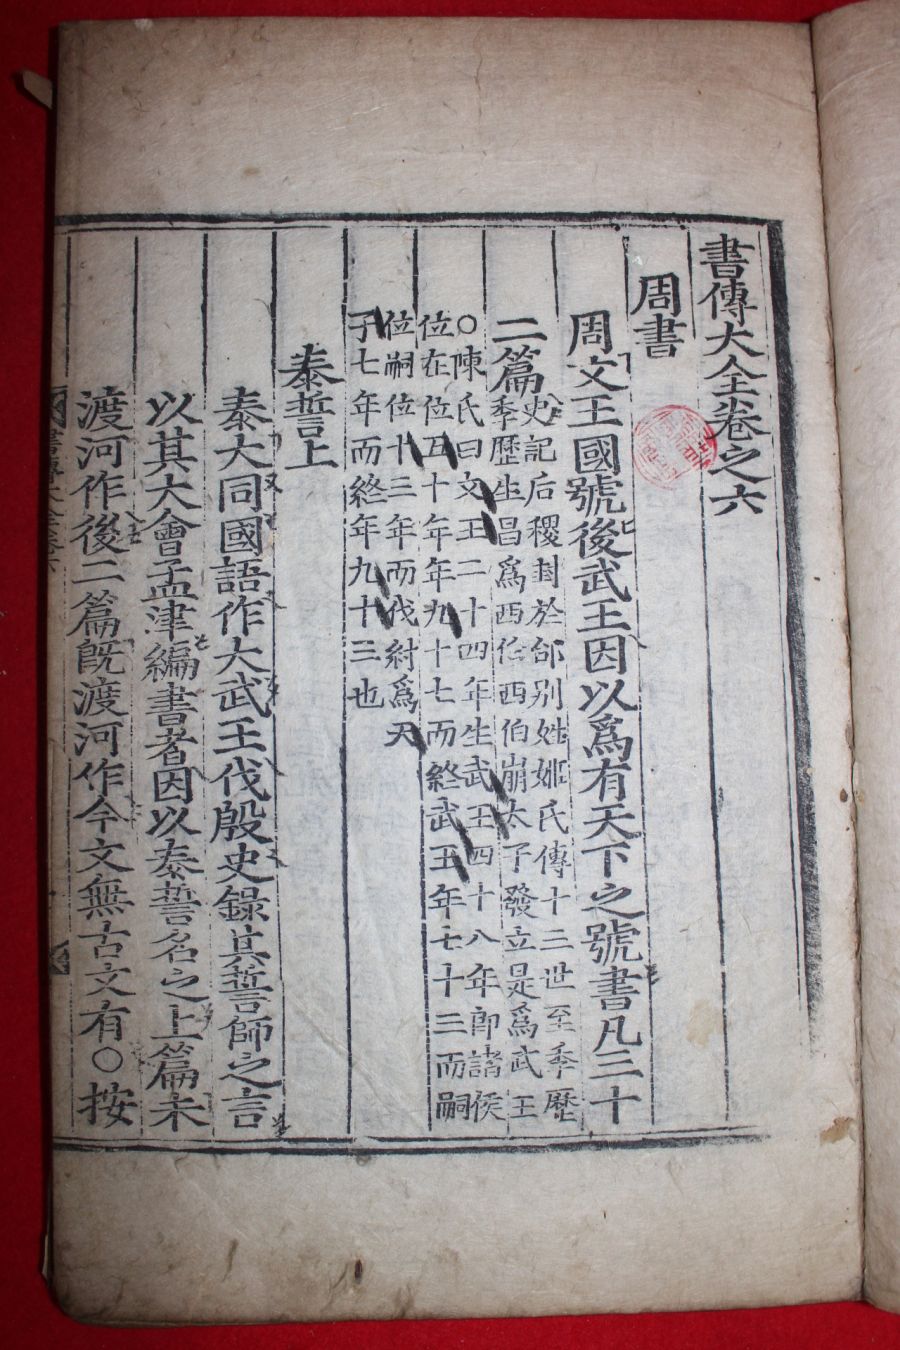 書傳大全卷之六
周書
周文王國號後武王因以爲有天下之號書凡三十
二篇
史記后稷封於邰別姓姬氏傳十三世至季歷
季歷生昌爲西伯西伯崩太子發立是爲武王
○陳氏曰文王二十四年生武王四十八年卽諸侯
位在位五十年年九十七而終武王年七十三而嗣
位嗣位十三年而伐紂爲天
子七年而終年九十三也
泰誓上
泰大同國語作大武王伐殷史錄其誓師之言
以其大會孟津編書者因以泰誓名之上篇未
渡河作後二篇旣渡河作今文無古文有○按